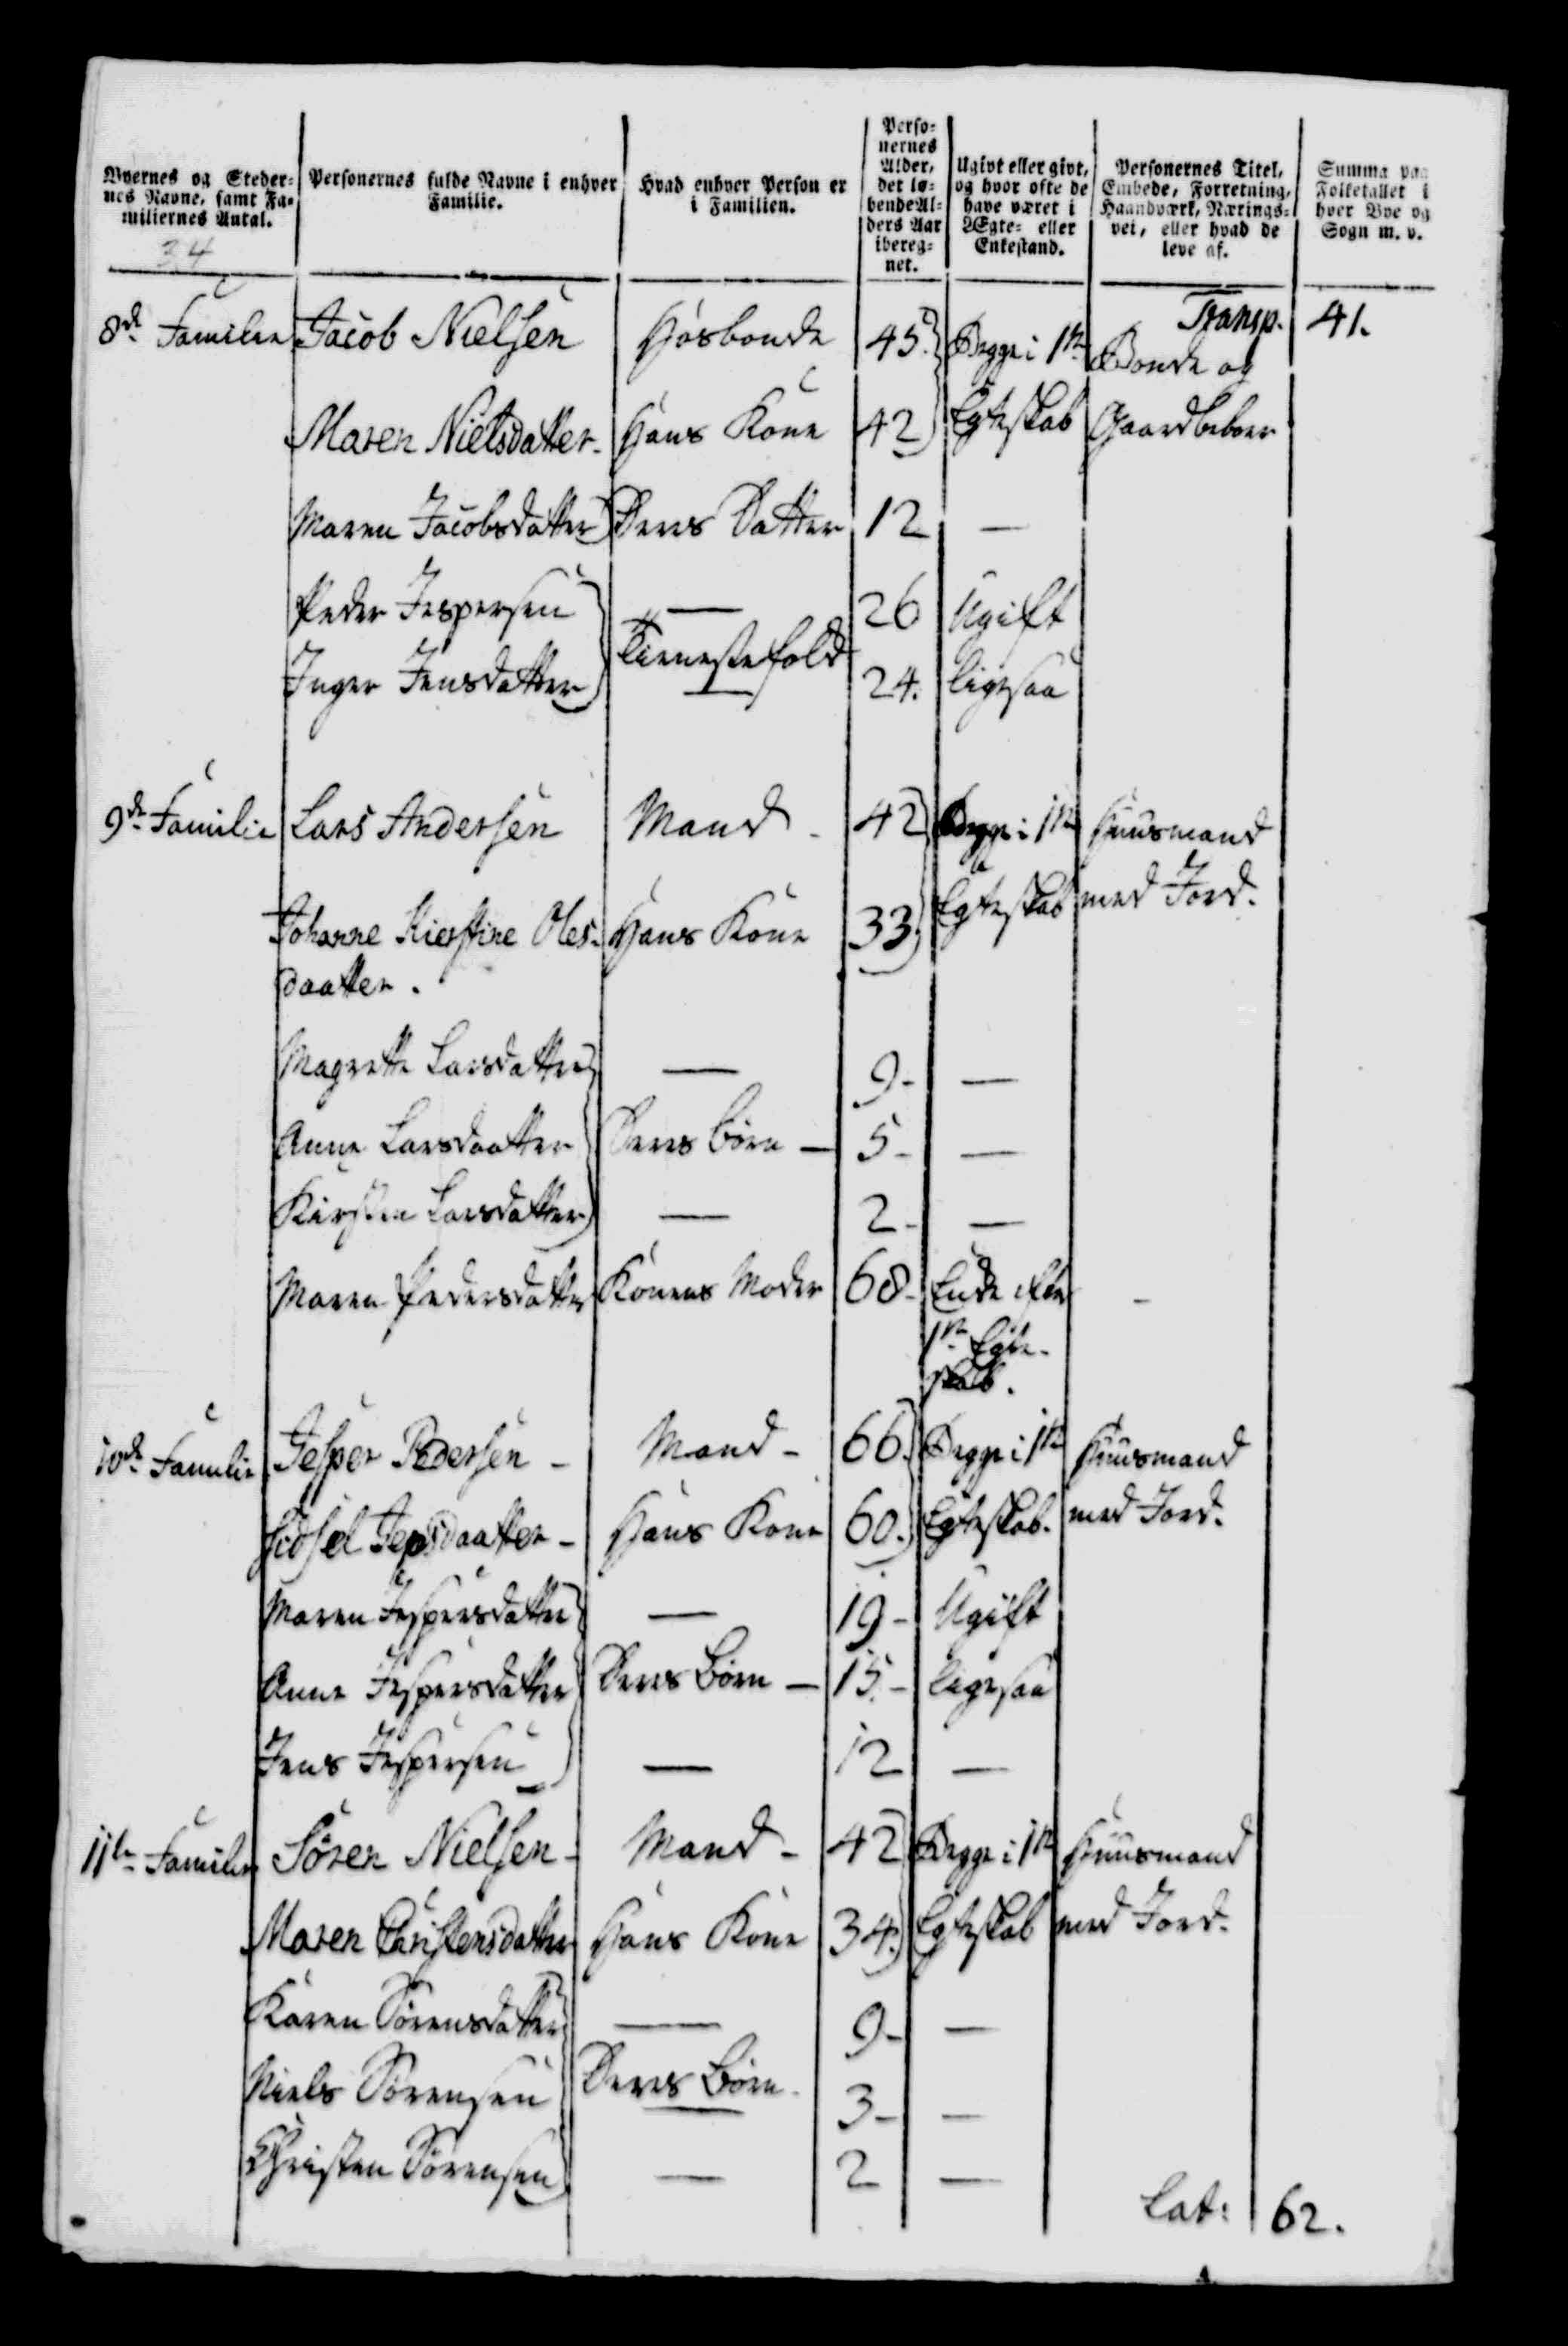 Byernes og Steder=
nes Navne, samt Fa=
miliernes Antal.
34
Personernes fulde Navne i enhver
Familie.
Hvad enhver Person er
i Familien.
Perso=
nernes
Alder,
det lø=
bende Al=
ders Aar
ibereg=
net.
Ugivt eller givt,
og hvor ofte de
have været i
Ægte= eller
Enkestand.
Personernes Titel,
Embede, Forretning,
Haandværk, Nærings=
vei, eller hvad de
leve af.
Summa paa
Folketallet i
hver Bye og
Sogn m. v.
Transp. 41.
8de Familie Jacob Nielsen Hosbonde 45. Begge i 1te Bonde og
Maren Nielsdatter- Hans Kone 42 Egteskab Gaardbeboer
Maren Jacobsdatter Deres Datter 12 —
Peder Jespersen — 26 Ugift
Tienestefolk
Inger Jensdatter — 24. ligesaa
9de Familie Lars Andersen Mand - 42 Begge i 1te Huusmand
Johanne Kierstine Oles- Hans Kone 33. Egteskab med Jord.
daatter.
Magrette Larsdatter — 9- —
Anne Larsdaatter Deres Børn — 5- —
Kirsten Larsdatter — 2- —
Maren Pedersdatter Konens Moder 68- Enke efter -
1te Egte-
skab.
10de Familie Jesper Pedersen - Mand - 66. Begge i 1te Huusmand
Sidsel Jepsdaatter - Hans Kone 60. Egteskab. med Jord.
Maren Jespersdatter — 19- Ugift
Anne Jespersdatter Deres Børn — 15.- ligesaa
Jens Jespersen — 12 —
11te Familie Sören Nielsen - Mand - 42 Begge i 1te Huusmand
Maren Christensdatter Hans Kone 34. Egteskab med Jord.
Karen Sørensdatter — 9- —
Niels Sørensen Deres Børn- 3- —
Christen Sørensen — 2 —
Lat: 62.